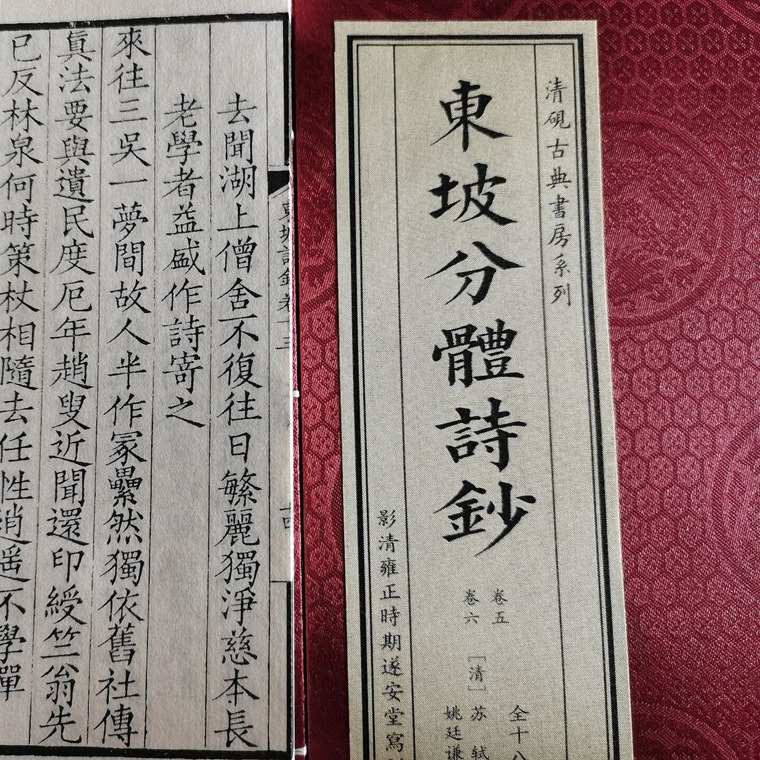 清硯古典書房系列
東坡分體詩鈔
卷五
卷六
全十八
［清］苏轼
姚廷谦
影清雍正時期遂安堂寫
東坡詩鈔卷十三
去聞湖上僧舍不復往日繁麗獨淨慈本長
老學者益盛作詩寄之
來往三吳一夢間故人半作冢纍然獨依舊社傳
眞法要與遺民度厄年趙叟近聞還印綬竺翁先
已反林泉何時策杖相隨去任性逍遙不學禪